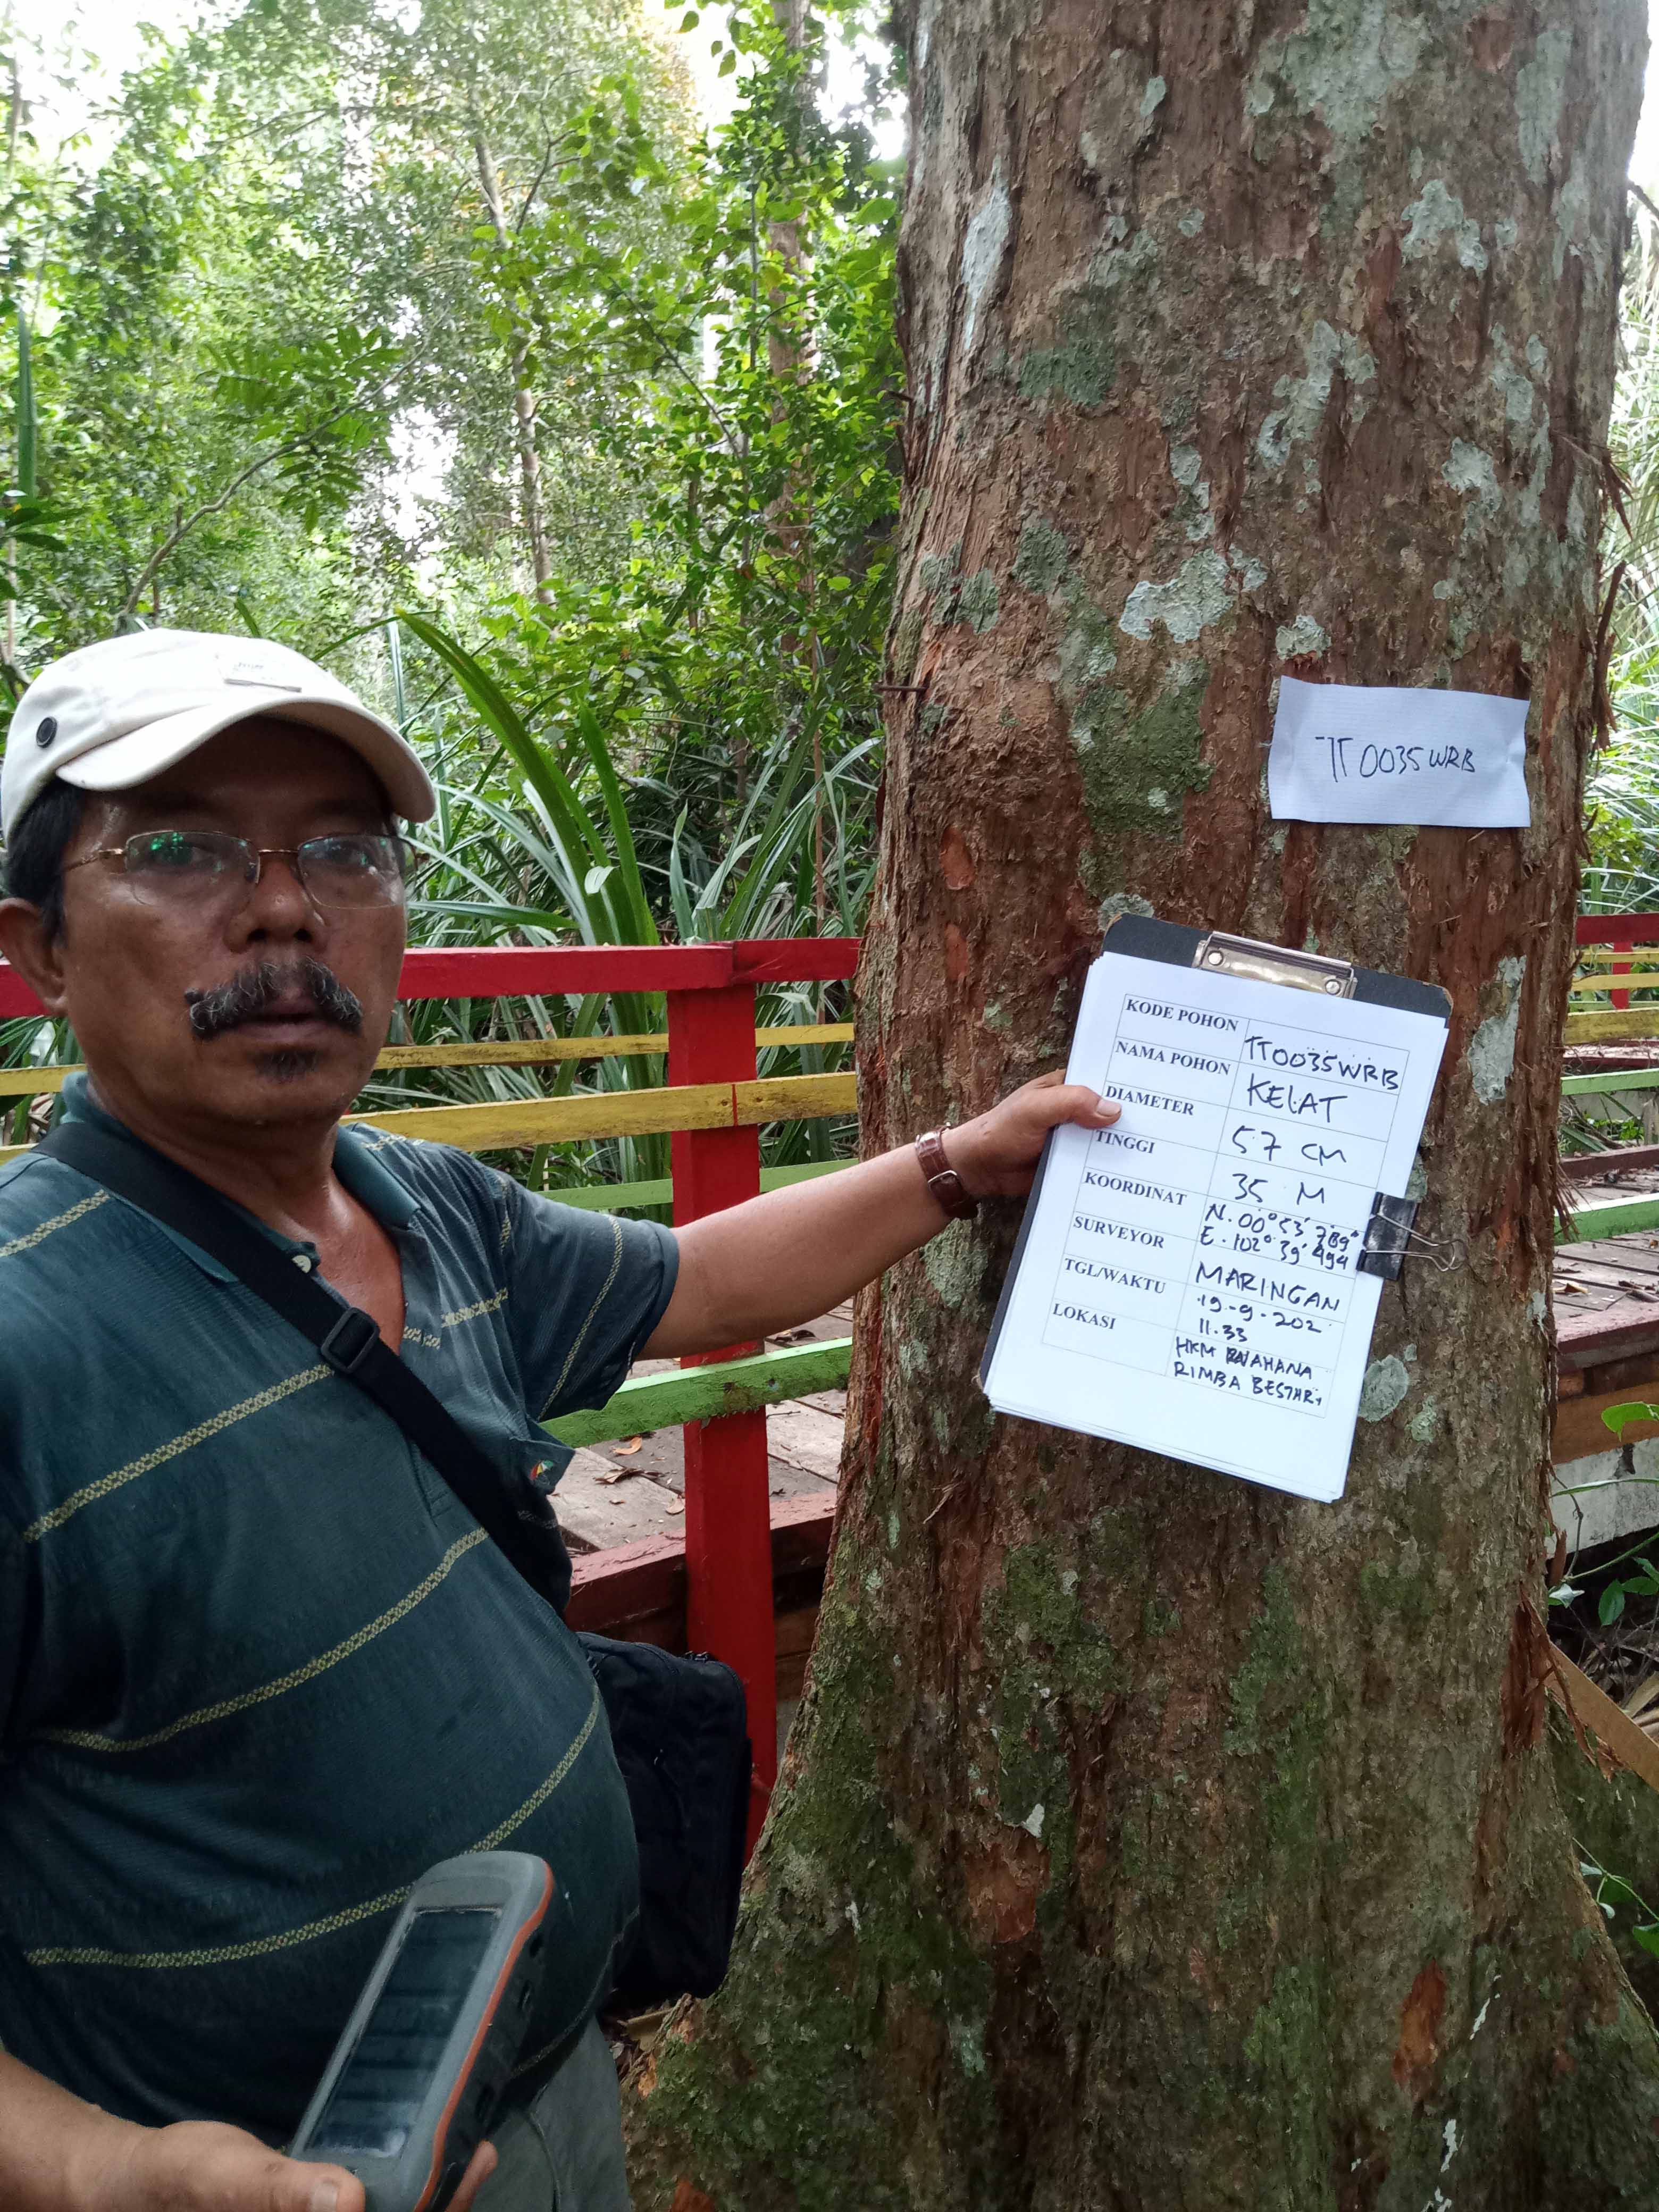 TT0035WRB
KODE POHON TT0035WRB
NAMA POHON KELAT
DIAMETER 57 CM
TINGGI 35 M
KOORDINAT N.00°53'789"
E.102°39'494
SURVEYOR MARINGAN
TGL/WAKTU 19-9-202
11.33
LOKASI HKM WAHANA
RIMBA BESTARI